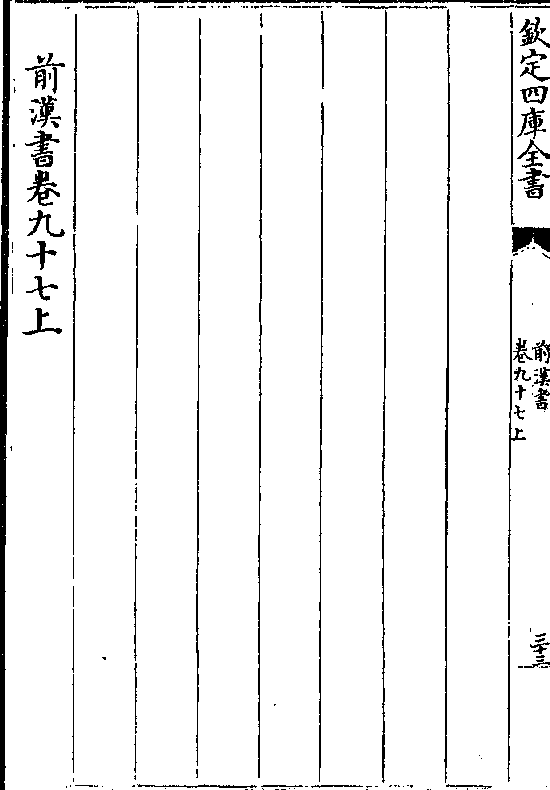 欽定四庫全書
前漢書
卷九十七上
三十三
前漢書卷九十七上